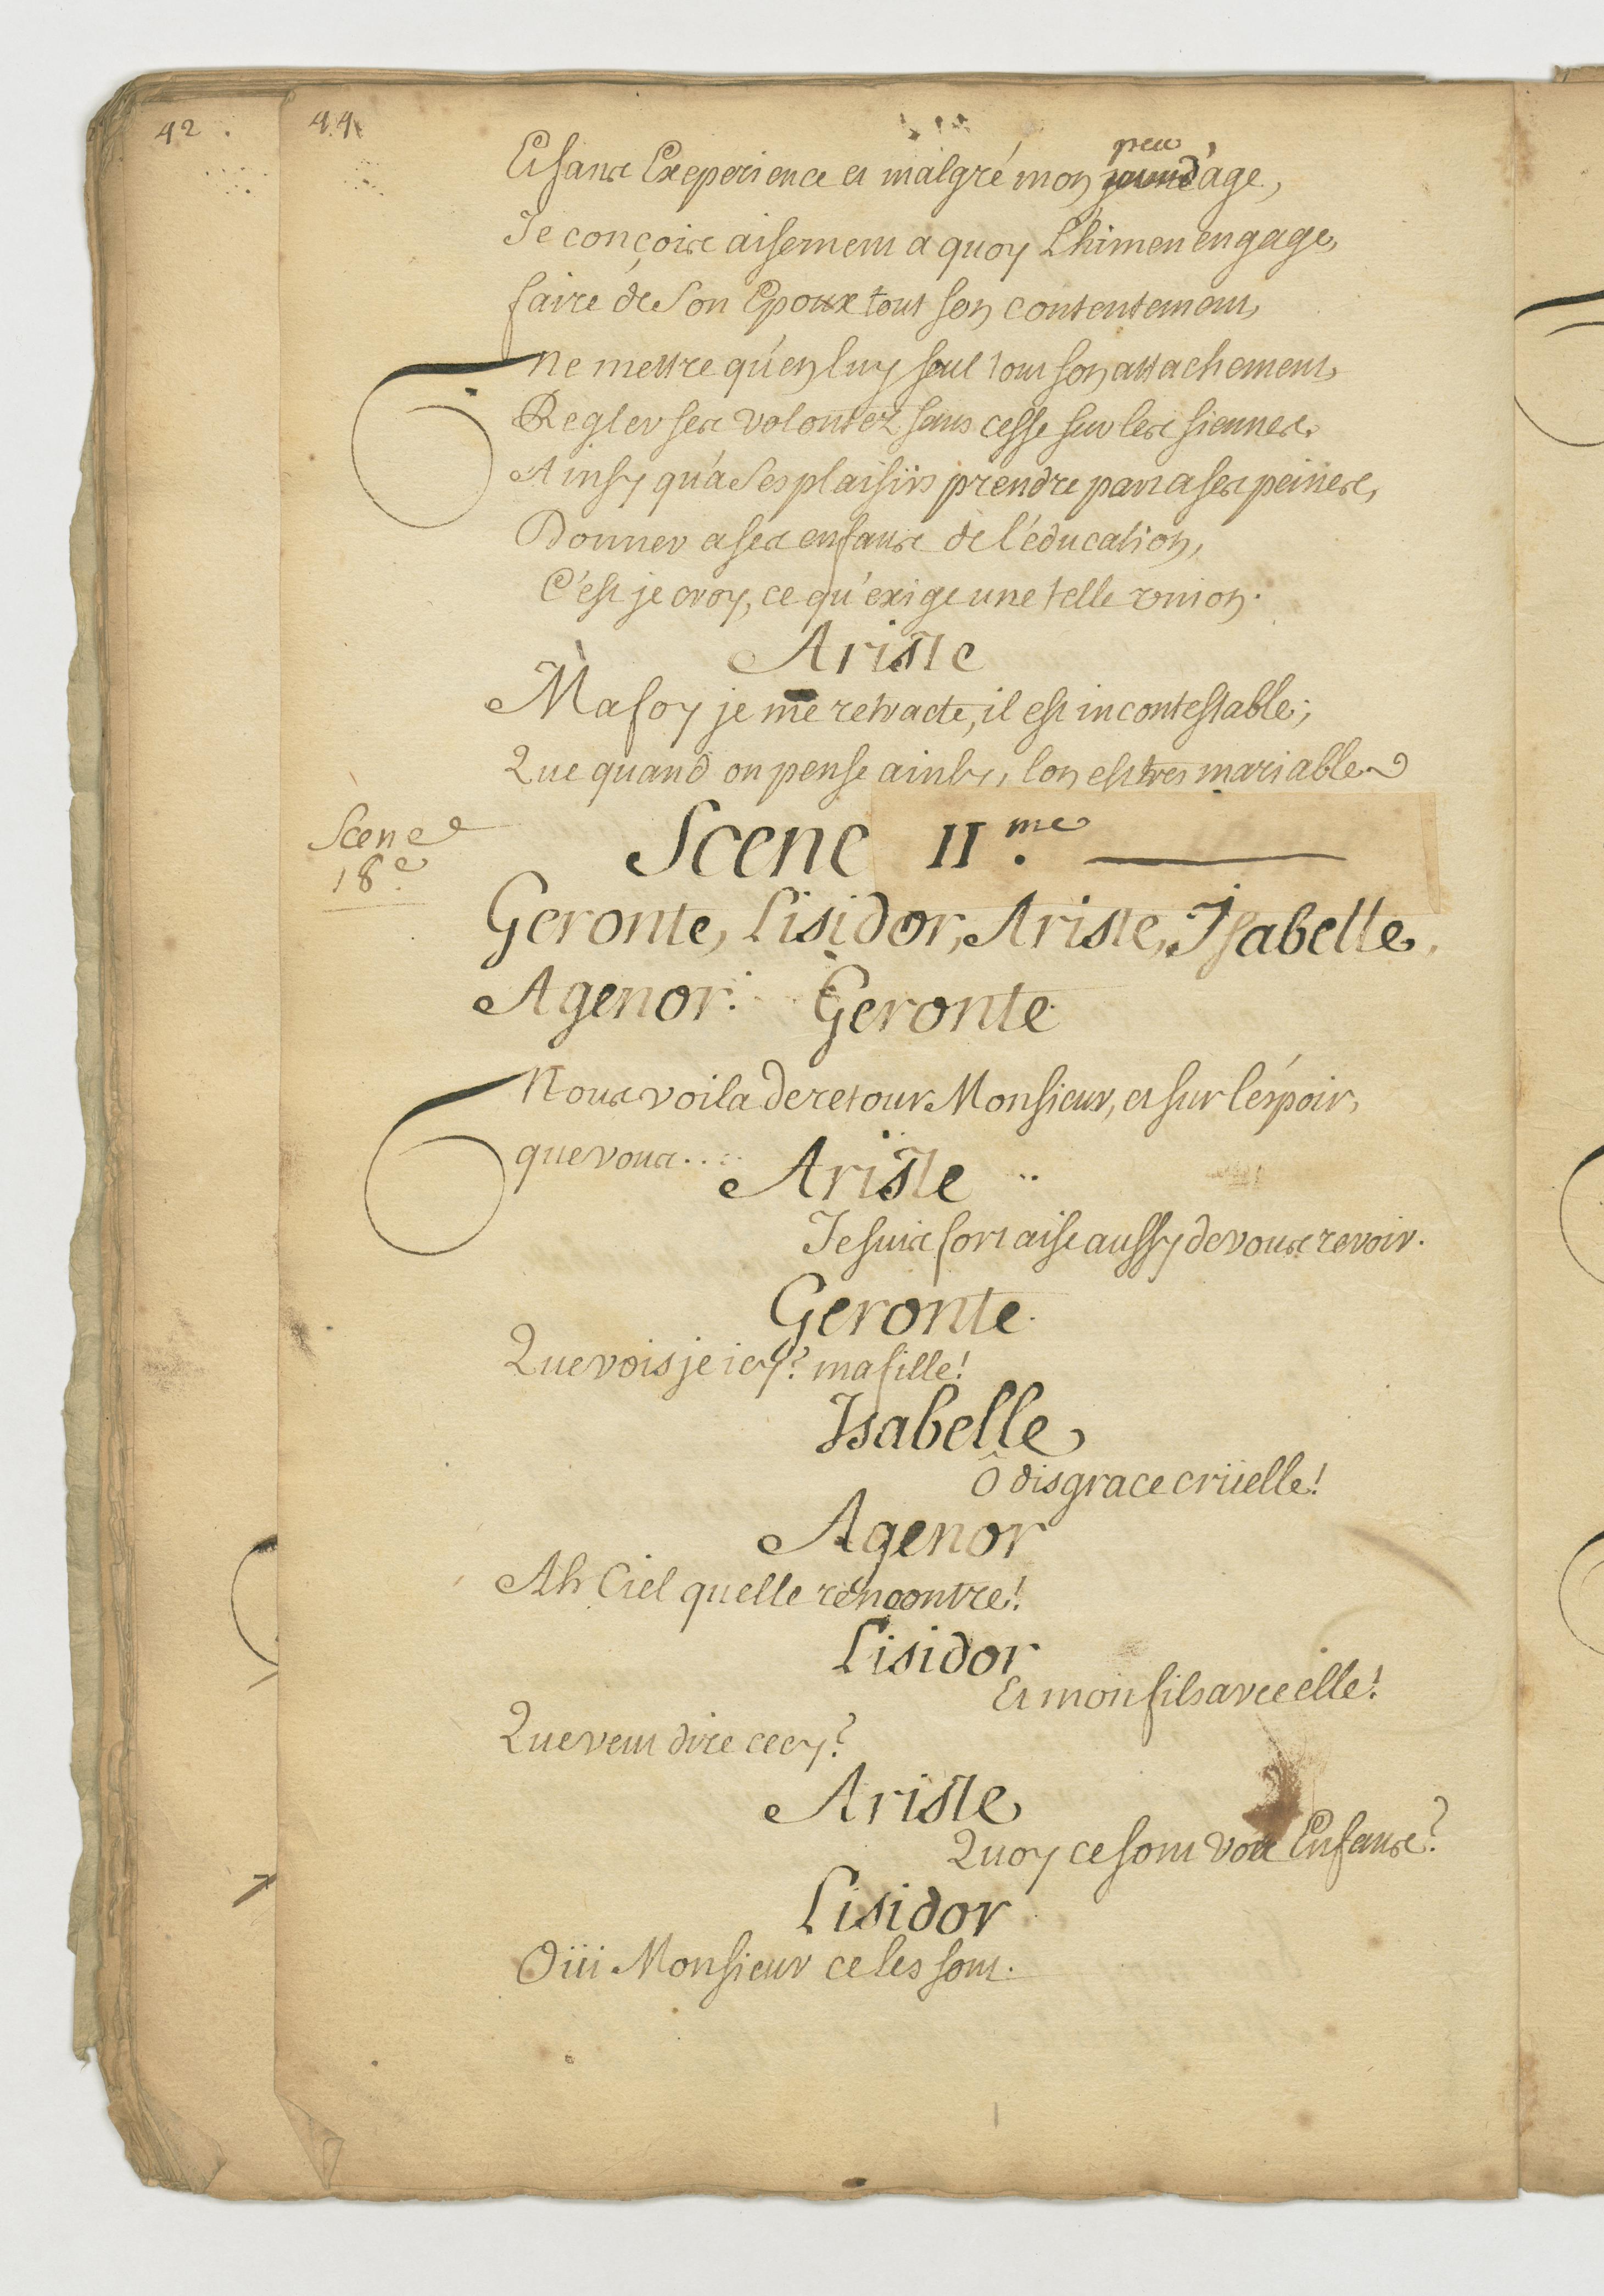 42
44
Et sans Exeperience et malgré mon peu d'age,
Je conçois aisement a quoy L'himen engage,
faire de Son Epoux tout son contentement,
Ne mettre qu'en luy seul tout son attachement,
Regler ses volontez sans cesse sur les siennes.
Ainsy qu'a Ses plaisirs prendre part a ses peines,
Donner a ses enfans de l'éducation,
C'est je croy, ce qu'exige une telle union.
Ariste
Ma foy je me retracte, il est incontestable;
Que quand on pense ainsy, lon est tres mariable
Scene 18e.
Scene IIme.
Geronte, Lisidor, Ariste, Isabelle,
Agenor. Geronte.
Nous voila de retour Monsieur, et sur l'éspoir,
que vous....
Ariste
Je suis fort aise aussy de vous revoir.
Geronte.
Que vois je icy? ma fille!
Isabelle
Ô disgrace crüelle!
Agenor
Ah Ciel quelle rencontre!
Lisidor
Et mon fils avec elle!
Que veut dire cecy?
Ariste
Quoy ce sont vos Enfans?
Lisidor
Oüi Monsieur ce les sont.